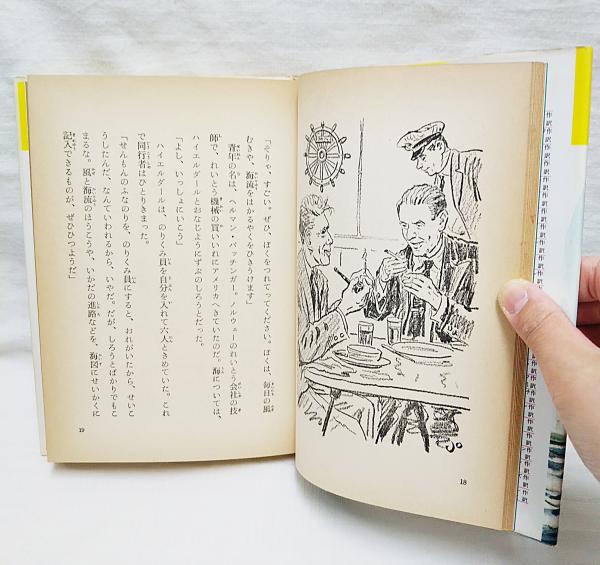 「そりゃ、すごい。ぜひ、ぼくをつれてってください。ぼくは、毎日の風
むきや、海流をはかるやくをひきうけます」
青年の名は、ヘルマン・バッチンガー。ノルウェーのれいとう会社の技
師で、れいとう機械の買いいれにアメリカへきていたのだ。海については、
ハイエルダールとおなじようにずぶのしろうとだった。
「よし、いっしょにいこう」
ハイエルダールは、のりくみ員を自分を入れて六人ときめていた。これ
で同行者はひとりきまった。
「せんもんのふなのりを、のりくみ員にすると、おれがいたから、せいこ
うしたんだ、なんていわれるから、いやだ。だが、しろうとばかりでもこ
まるな。風と海流のほうこうや、いかだの進路などを、海図にせいかくに
記入できるものが、ぜひひつようだ」
19
18